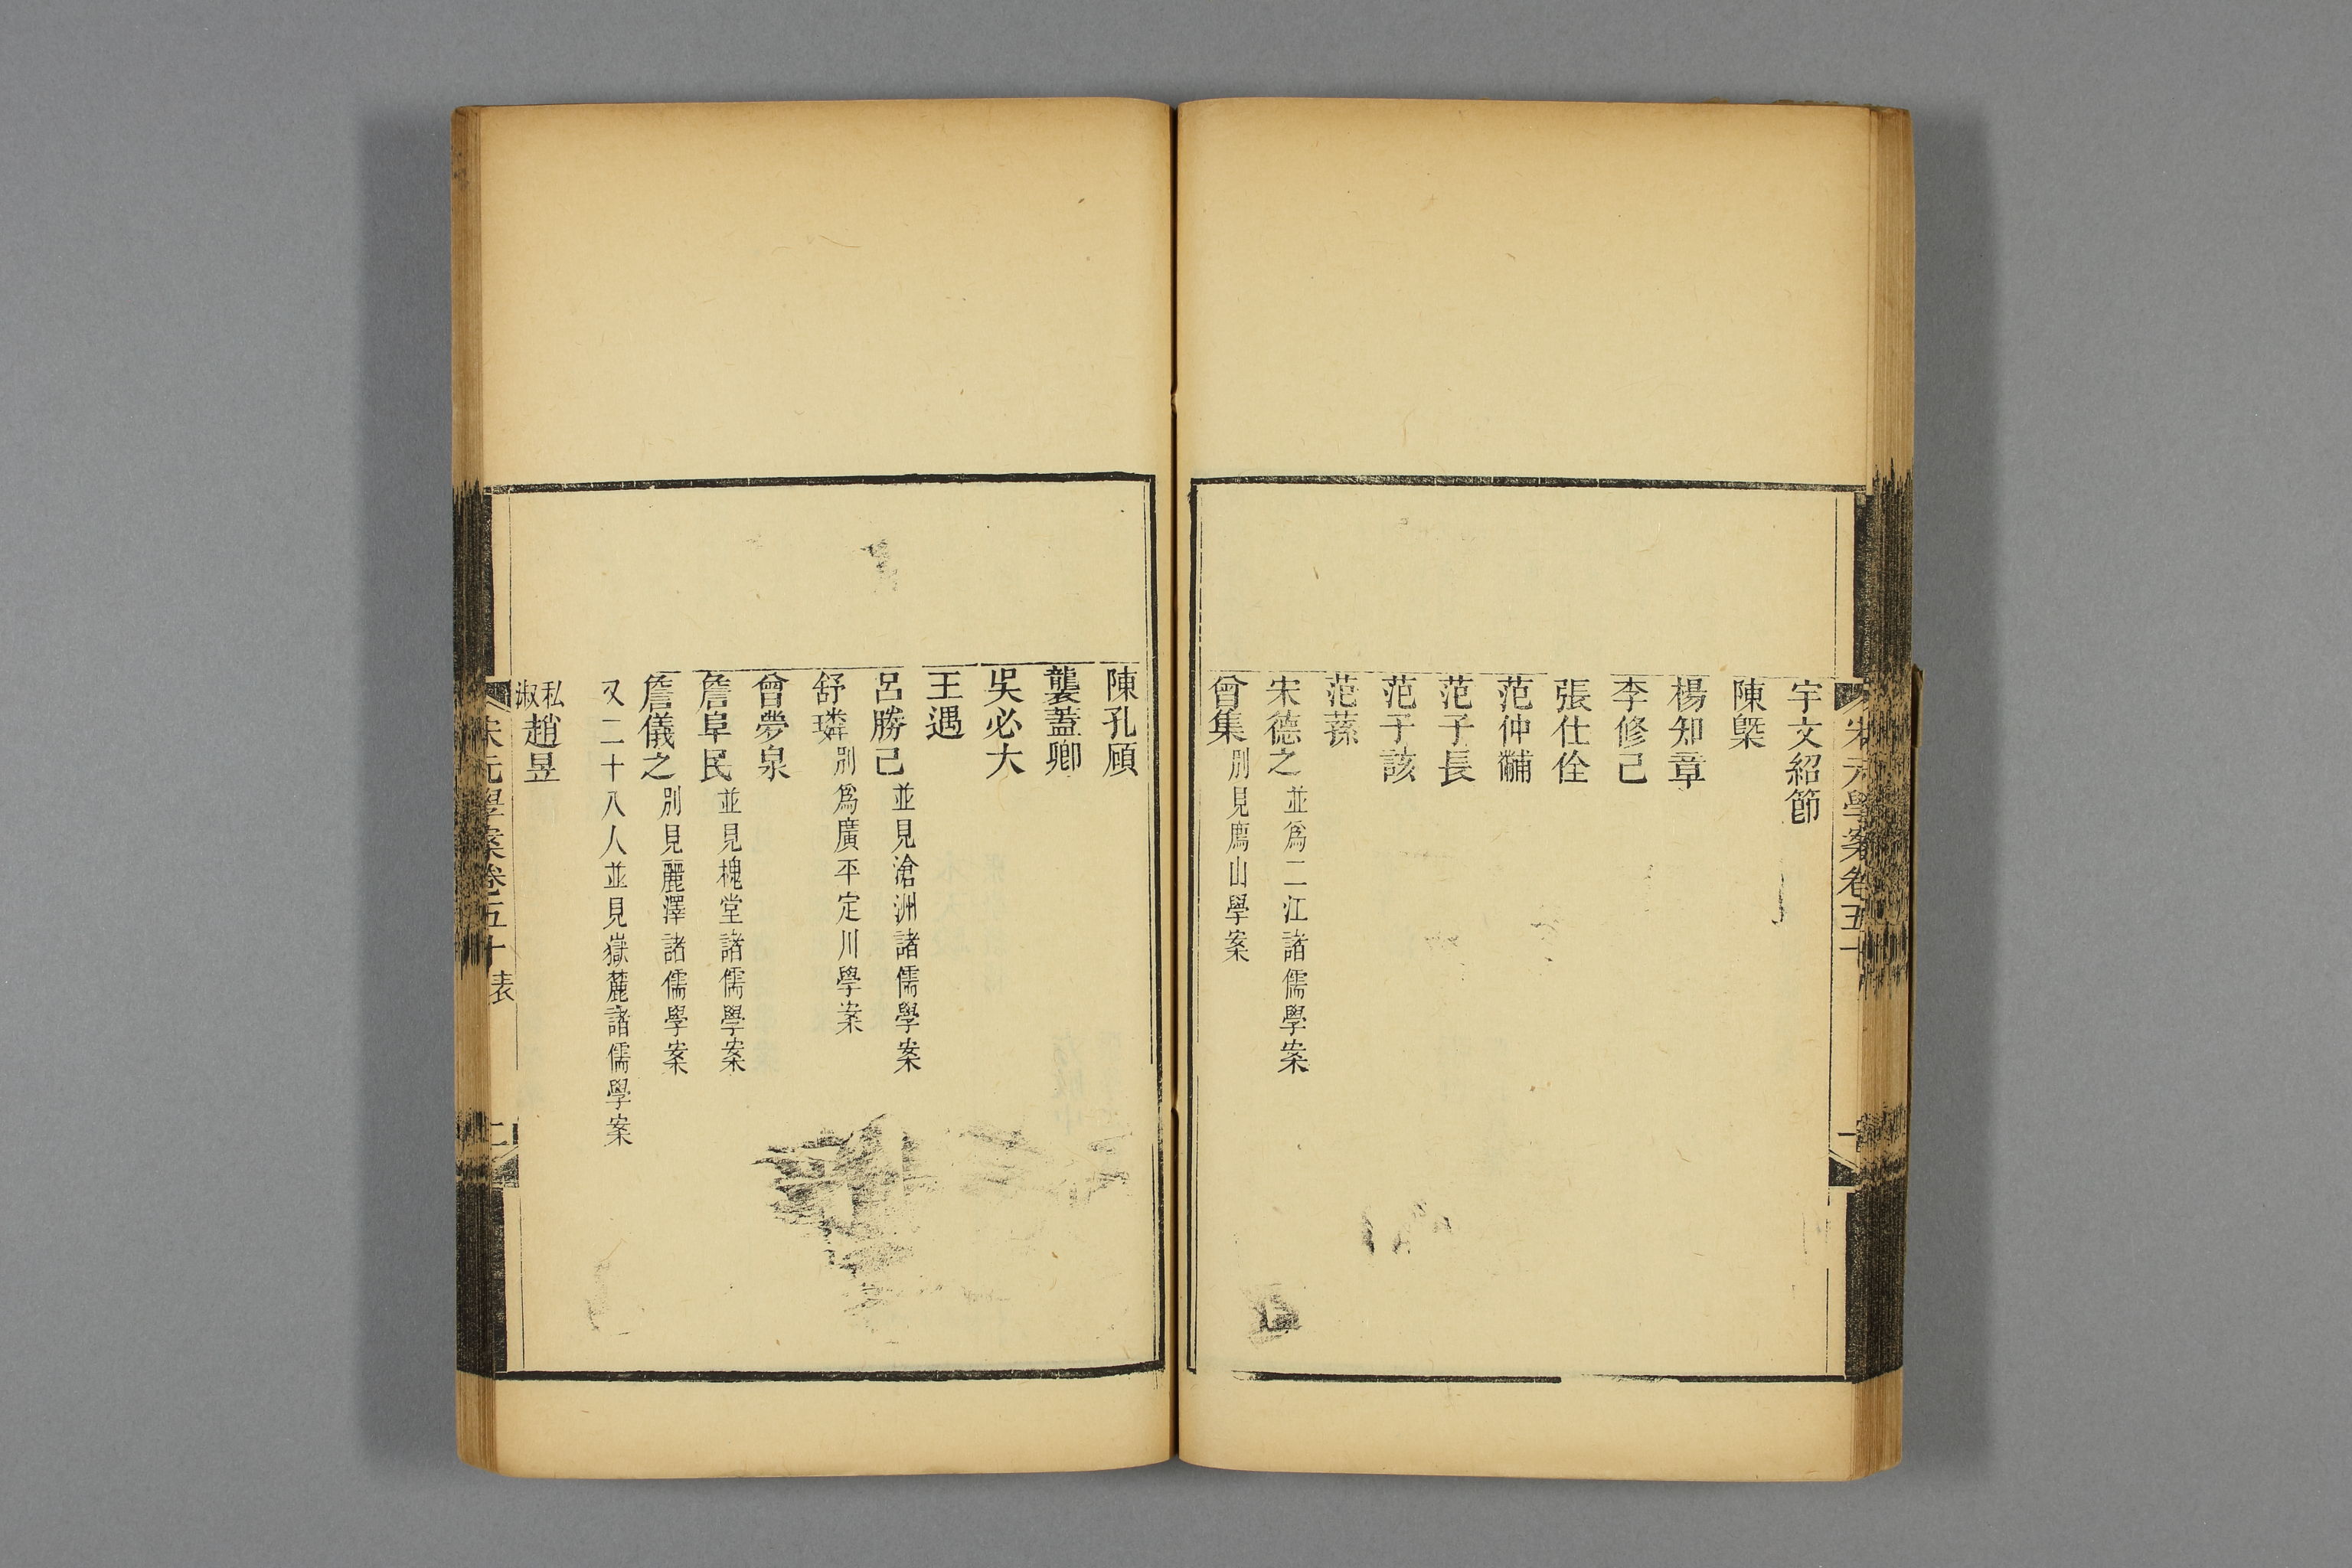 宋元學案卷五十
一
宇文紹節
陳槩
楊知章
李修己
張仕佺
范仲黼
范子長
范子該
范蓀
宋德之並爲二江諸儒學案
曾集別見廌山學案
陳孔碩
龔蓋卿
吳必大
王遇
呂勝己並見滄洲諸儒學案
舒璘別爲廣平定川學案
曾夢泉
詹阜民並見槐堂諸儒學案
詹儀之別見麗澤諸儒學案
又二十八人並見嶽麓諸儒學案
私淑趙昱
宋元學案卷五十表
二